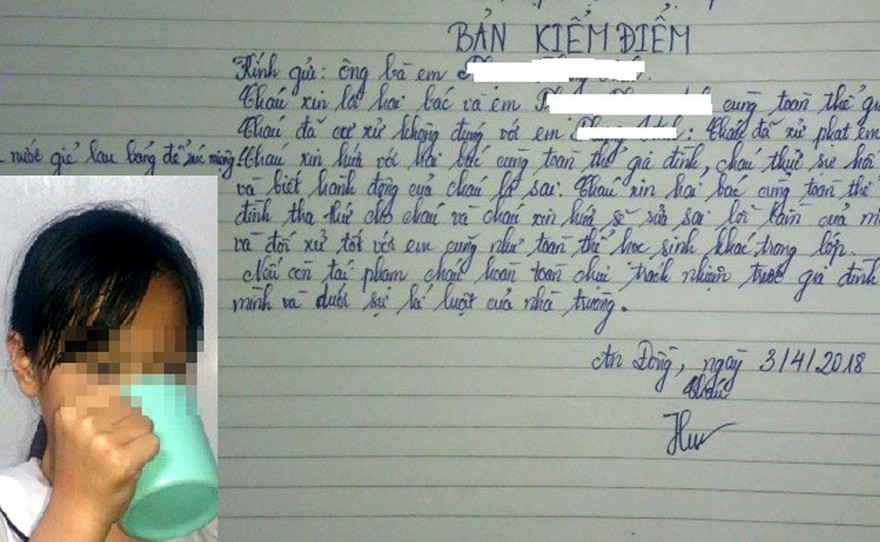 BẢN KIỂM ĐIỂM
Kính gửi: ông bà em
Cháu xin lỗi hai bác và em cùng toàn thể gi
Cháu đã cư xử không đụng với em : Cháu đã xử phạt em
nước giẻ lau bảng để súc miệng. Cháu xin hứa với hai bác cùng toàn thể gia đình, cháu thực sự hối
và biết hành động của cháu là sai. Cháu xin hai bác cùng toàn thể
đình tha thứ cho cháu và cháu xin hứa sẽ sửa sai lỗi lầm của m
và đối xử tốt với em cũng như toàn thể học sinh khác trong lớp.
Nếu còn tái phạm cháu hoàn toàn chịu trách nhiệm trước gia đình
mình và dưới sự kỉ luật của nhà trường.
An Đồng, ngày 3/4/2018
Cháu